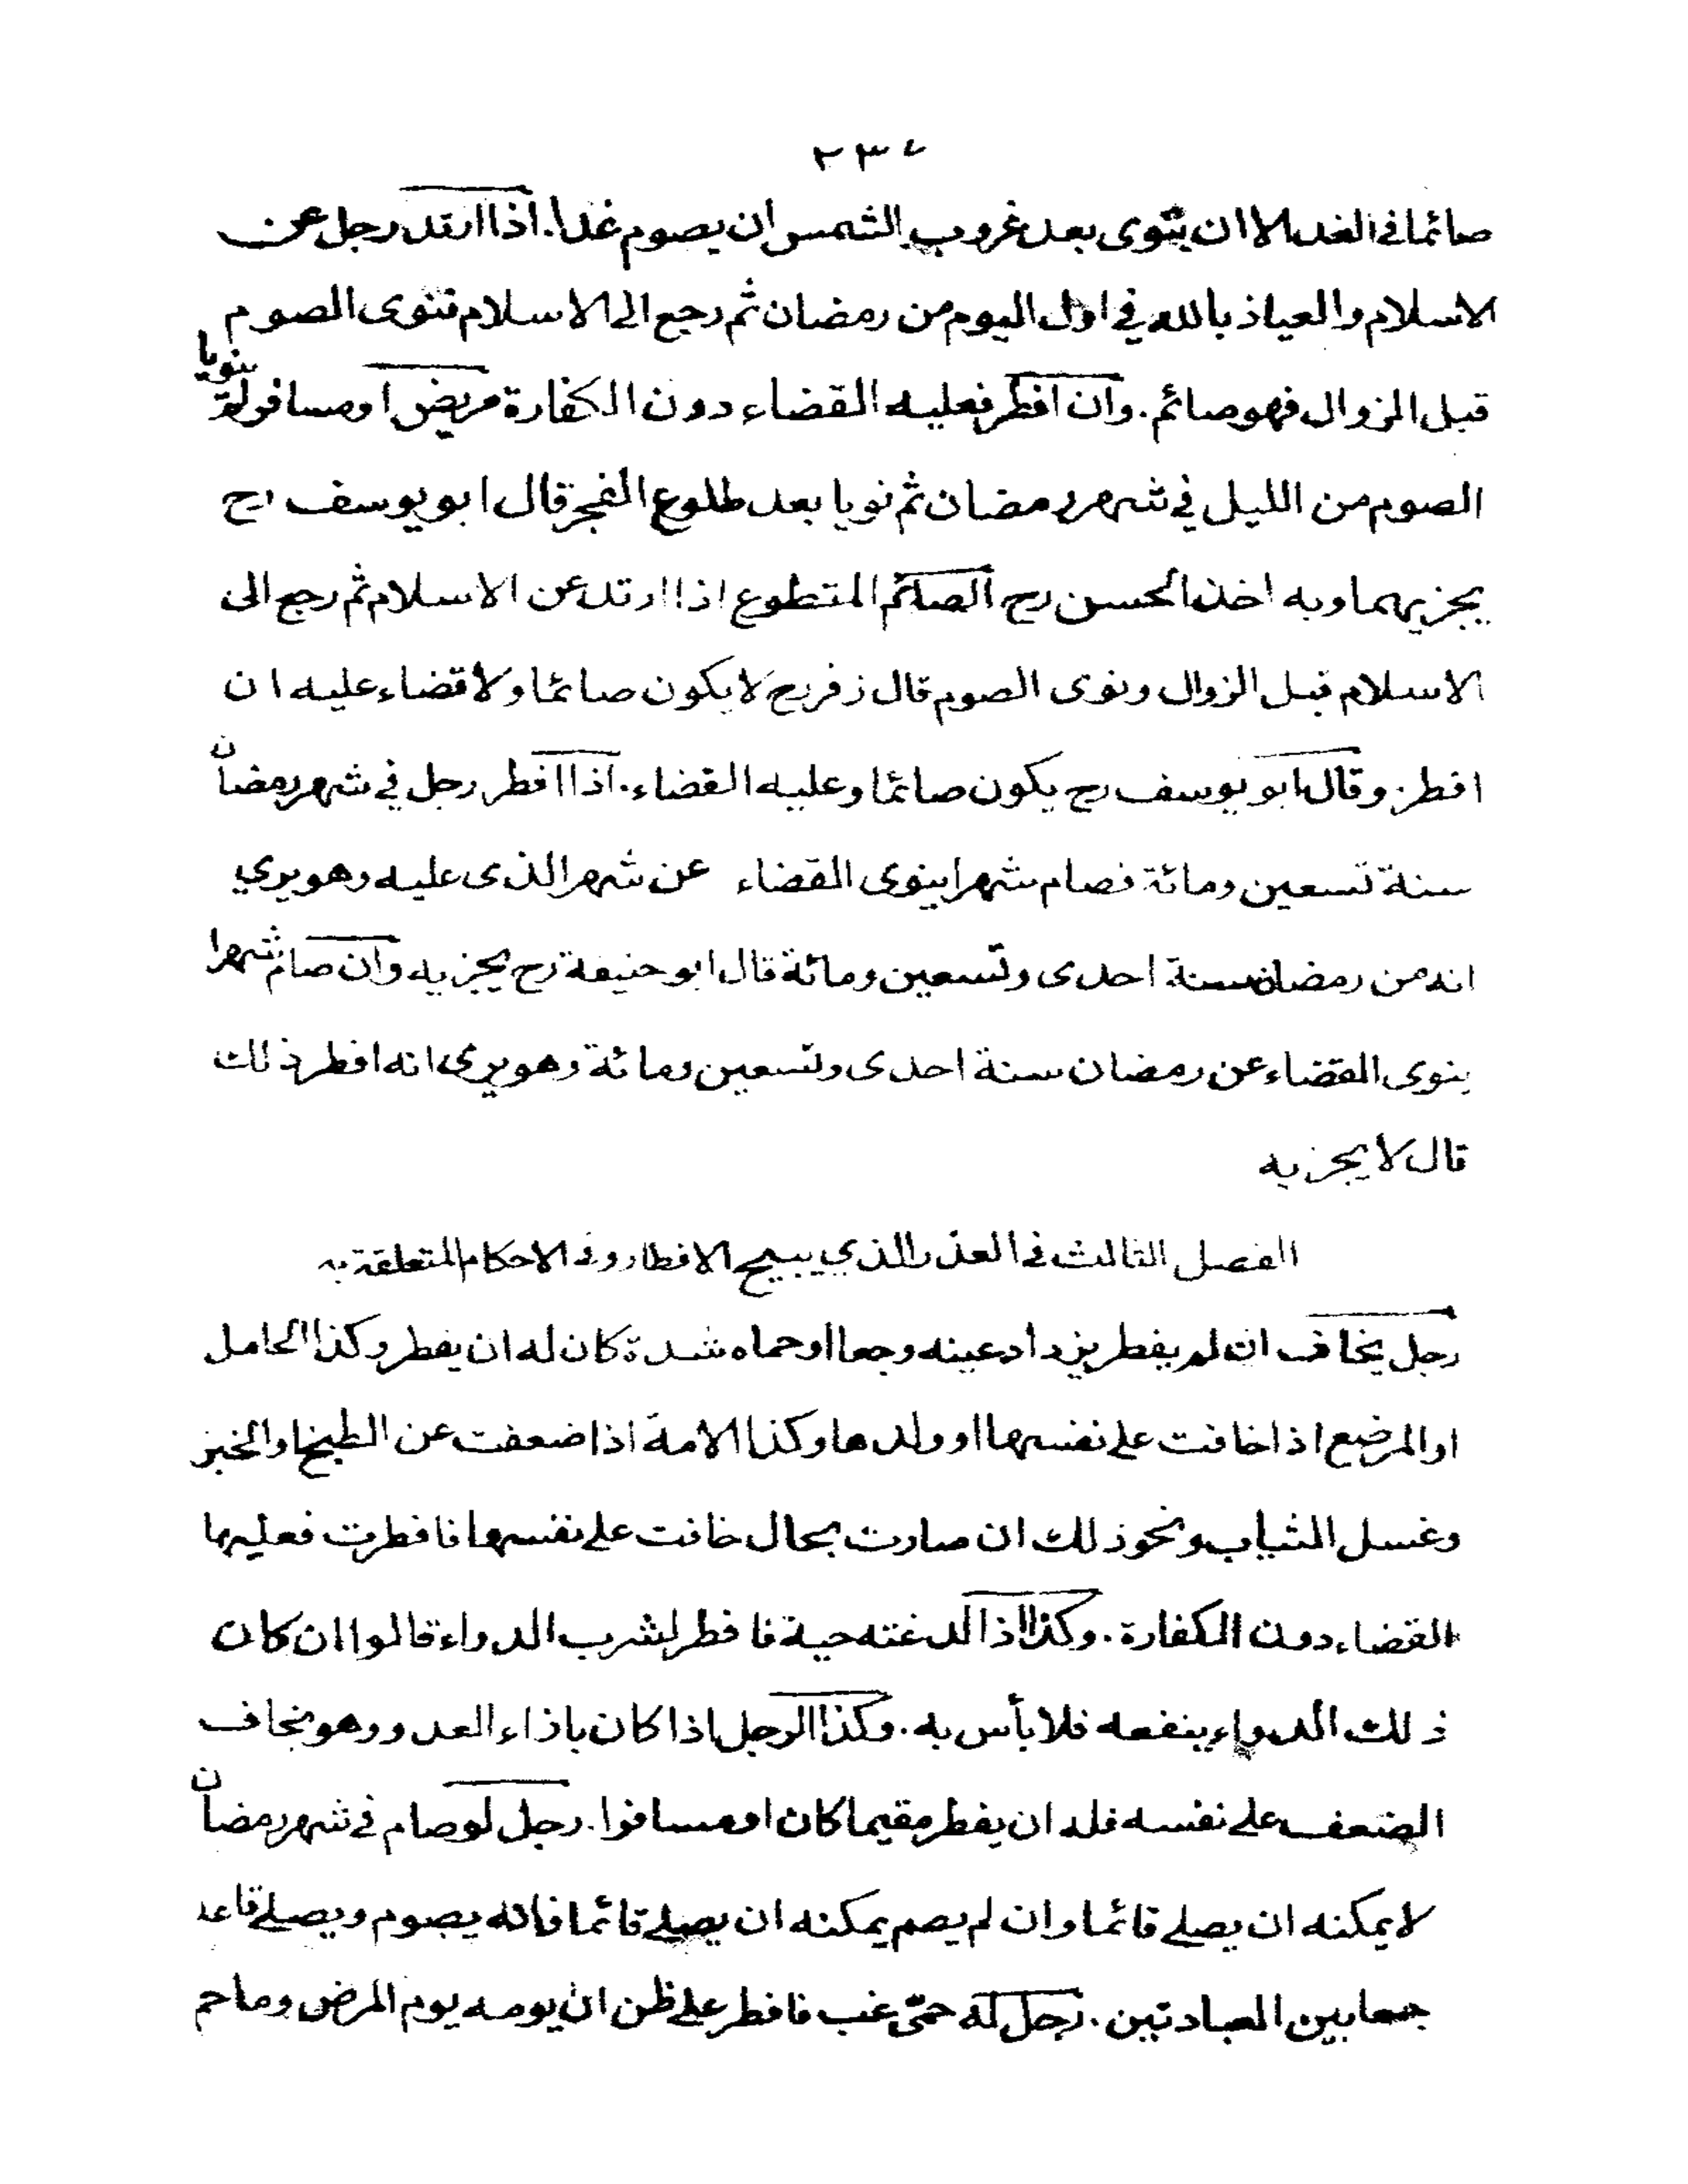 ٢٣٧
صائما في الغد الا ان ينوى بعد غروب الشمس ان يصوم غدا. اذا ارتد رجل عن
الاسلام والعياذ بالله في اول اليوم من رمضان ثم رجع الى الاسلام فنوى الصوم
قبل الزوال فهو صائم. وان افطر فعليه القضاء دون الكفارة مريض او مسافر لم ينويا
الصوم من الليل في شهر رمضان ثم نويا بعد طلوع الفجر قال ابو يوسف رح
يجزيهما وبه اخذ الحسن رح الصائم المتطوع اذا ارتد عن الاسلام ثم رجع الى
الاسلام قبل الزوال ونوى الصوم قال زفر رح لا يكون صائما ولا قضاء عليه ان
افطر. وقال ابو يوسف رح يكون صائما وعليه القضاء. اذا افطر رجل في شهر رمضان
سنة تسعين ومائة فصام شهرا ينوى القضاء عن شهر الذى عليه وهو يري
انه من رمضان سنة احدى وتسعين ومائة قال ابو حنيفة رح يجزيه وان صام شهرا
ينوى القضاء عن رمضان سنة احدى وتسعين ومائة وهو يرى انه افطر ذلك
قال لا يجزيه
الفصل الثالث في العذر الذي يبيح الافطار وفى الاحكام المتعلقة به
رجل يخاف ان لم يفطر يزداد عينه وجعا او حماه شدة كان له ان يفطر وكذا الحامل
او المرضع اذا خافت على نفسها او ولدها وكذا الامة اذا ضعفت عن الطبخ او الخبز
وغسل الثياب ونحو ذلك ان صارت بحال خافت على نفسها فافطرت فعليها
القضاء دون الكفارة. وكذا اذا لدغته حية فافطر لشرب الدواء قالوا ان كان
ذلك الدواء ينفعه فلا بأس به. وكذا الرجل اذا كان بازاء العدو وهو يخاف
الضعف على نفسه فله ان يفطر مقيما كان او مسافرا. رجل لو صام في شهر رمضان
لا يمكنه ان يصلے قائما وان لم يصم يمكنه ان يصلے قائما فانه يصوم ويصلے قاعد
جمعا بين العبادتين. رجل له حمّى غب فافطر على ظن ان يومه يوم المرض وما حم